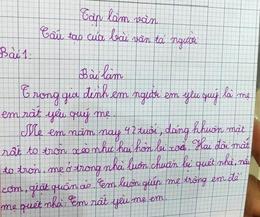 Tập làm văn
Cấu tạo của bài văn tả người
Bài 1:
Bài làm
Trong gia đình em người em yêu quý là mẹ
em rất yêu quý mẹ.
Mẹ em năm nay 42 tuổi, dáng khuôn mặt
rất to tròn xáo như hai hòn bi xoe. Hai đôi mắt
to tròn. mẹ ở trong nhà luôn chuẩn bị quét nhà, nấu
cơm, giặt quần áo. Em luôn giúp mẹ trông em để
mẹ quét nhà. Em rất yêu mẹ em.